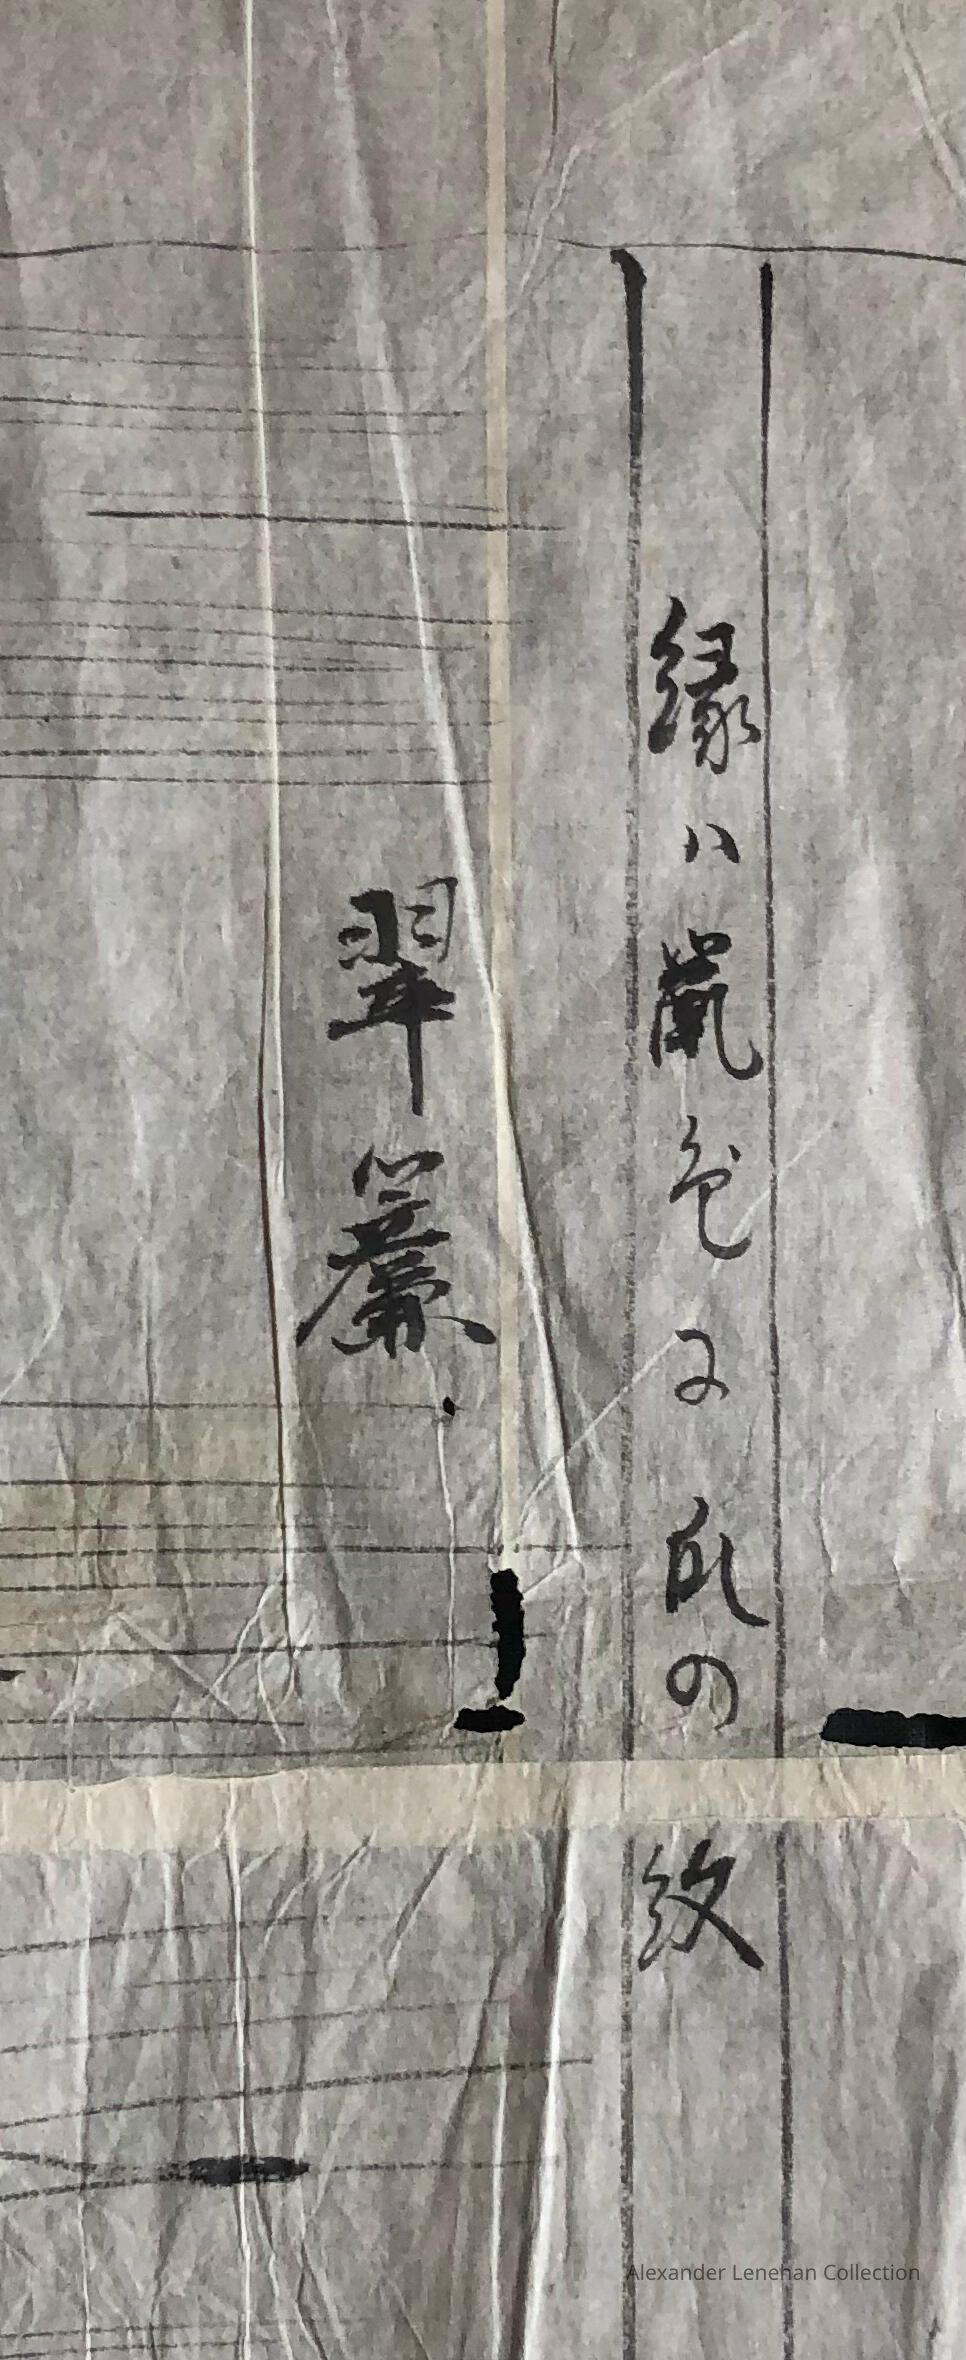 縁ハ鼠色 瓜の紋
翠簾
Alexander Lenehan Collection